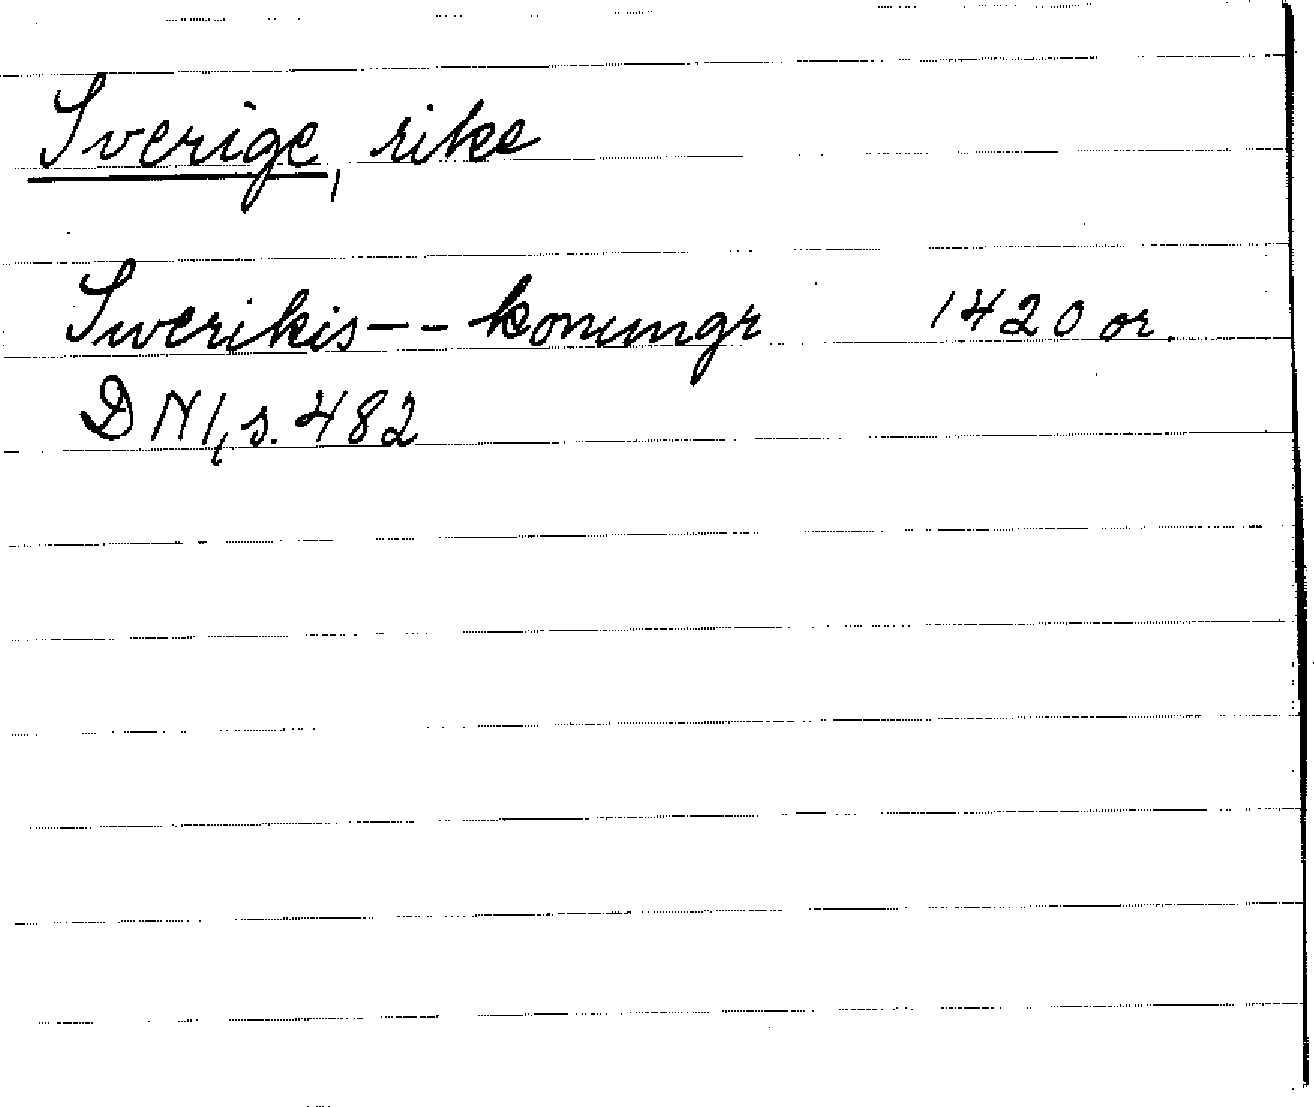 Sverige, rike
Swerikis--konungr 1420 or.
DN1, s. 482